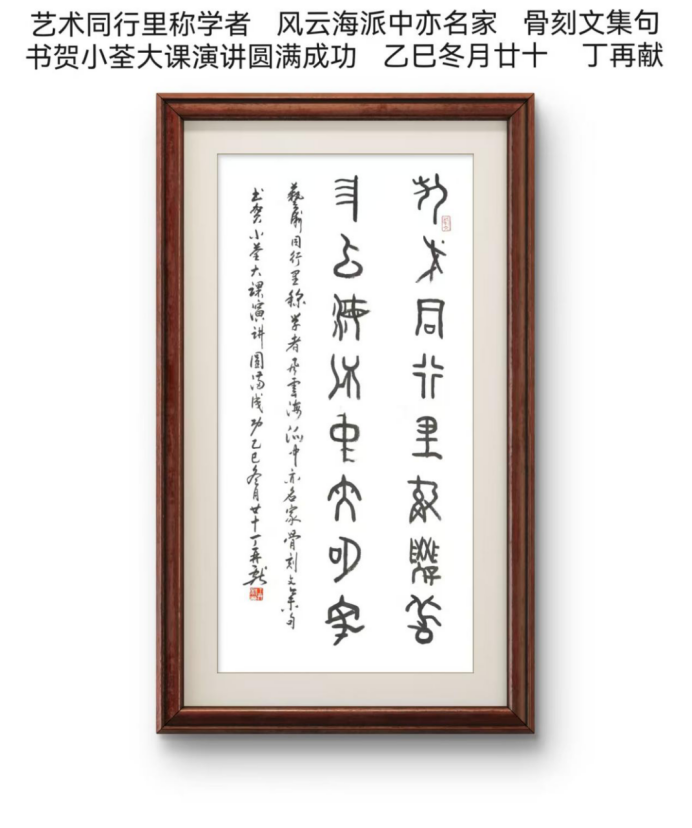 艺术同行里称学者　风云海派中亦名家　骨刻文集句
书贺小荃大课演讲圆满成功　乙巳冬月廿十　丁再献
艺术同行里称学者
风云海派中亦名家
藝術同行里称学者风雲海派中亦名家骨刻文集句
书贺小荃大课演讲圆满成功乙巳冬月廿十丁再献